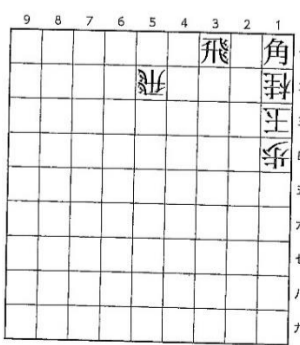 9 8 7 6 5 4 3 2 1
飛 角
飛 桂
王
歩
五
六
七
八
九